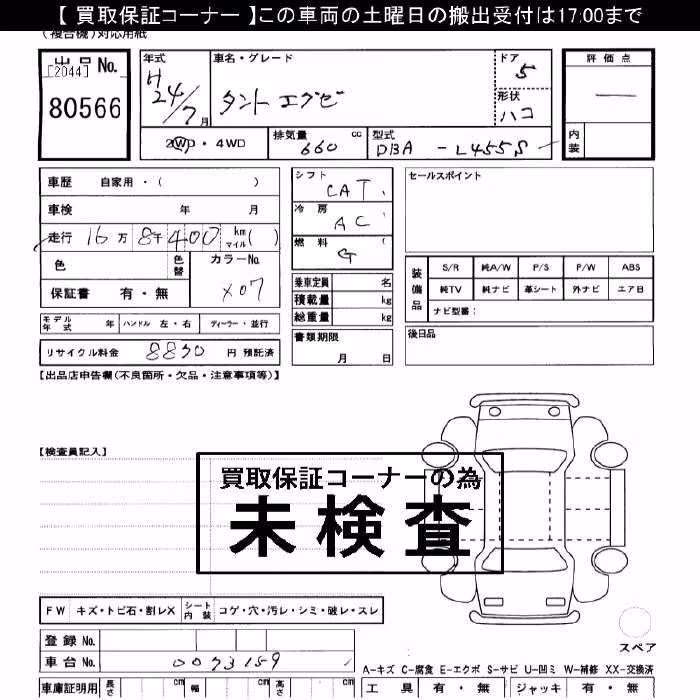 【 買取保証コーナー 】この車両の土曜日の搬出受付は17:00まで
(複合機)対応用紙
出品 No.
[2044]
80566
年式
H 24/7月
車名・グレード
タント エグゼ
ドア 5
形状 ハコ
評価点
—
内装
2WD・4WD
排気量 660 cc
型式 DBA - L455S
車歴 自家用・( )
車検 年 月
走行 16万 8千400 km マイル( )
色 色替
カラーNo.
X07
保証書 有・無
シフト CAT
冷房 AC
燃料 G ( )
乗車定員 名
積載量 kg
総重量 kg
書類期限
月 日
セールスポイント
装備品
S/R 純A/W P/S P/W ABS
純TV 純ナビ 革シート 外ナビ エア日
ナビ型番:
後日品
モデル年式 年 ハンドル 左・右 ディーラー・並行
リサイクル料金 8830 円 預託済
【出品店申告欄(不良箇所・欠品・注意事項等)】
【検査員記入】
買取保証コーナーの為
未検査
FW キズ・トビ石・割レX シート内装 コゲ・穴・汚レ・シミ・破レ・スレ
登録 No.
車台 No. 0073159
スペア
A-キズ C-腐食 E-エクボ S-サビ U-凹ミ W-補修 XX-交換済
車庫証明用 長さ cm 幅 cm 高さ cm
工具 有・無 ジャッキ 有・無